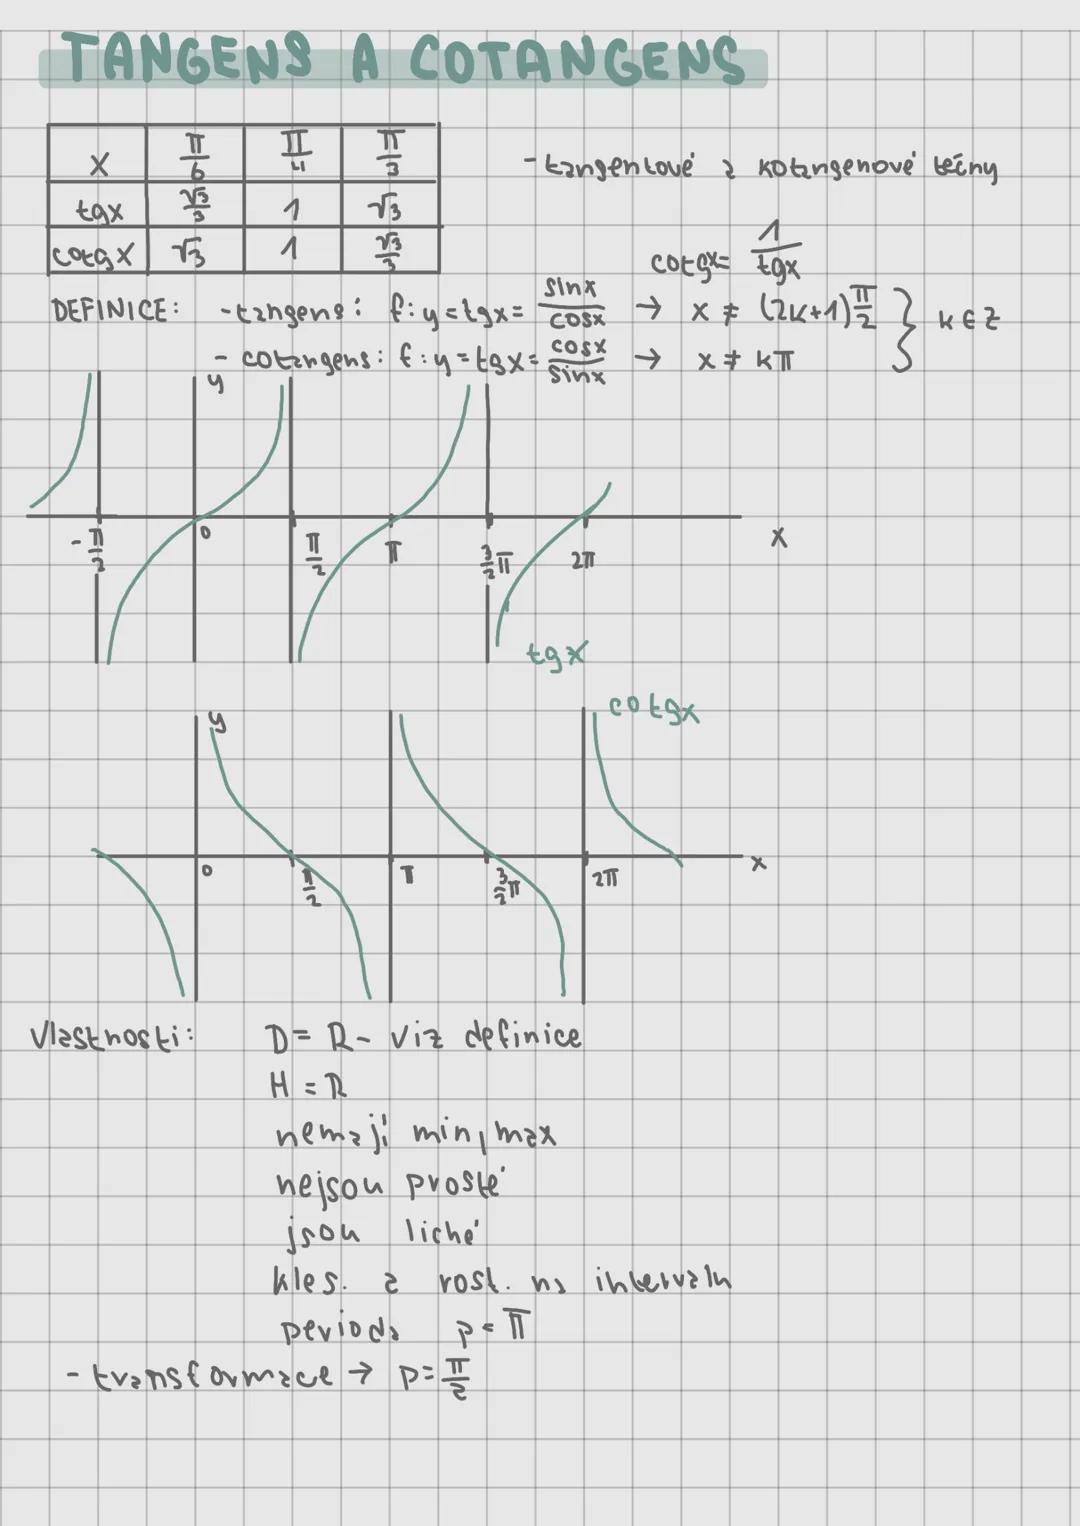 TANGENS A COTANGENS
x π/6 π/4 π/3
tgx √3/3 1 √3
cotgx √3 1 √3/3
- tangentové a kotangenové tečny
cotgx = 1/tgx
DEFINICE: - tangens: f: y = tgx = sinx/cosx → x ≠ (2k+1)π/2 } k∈Z
- cotangens: f: y = tgx = cosx/sinx → x ≠ kπ
y
-π/2 0 π/2 π 3/2π 2π x
tgx
cotgx
y
0 π/2 π 3/2π 2π x
Vlastnosti: D = R - viz definice
H = R
nemají min, max
nejsou prosté
jsou liché
kles. a rost. na intervalu
perioda p = π
- transformace → p = π/2